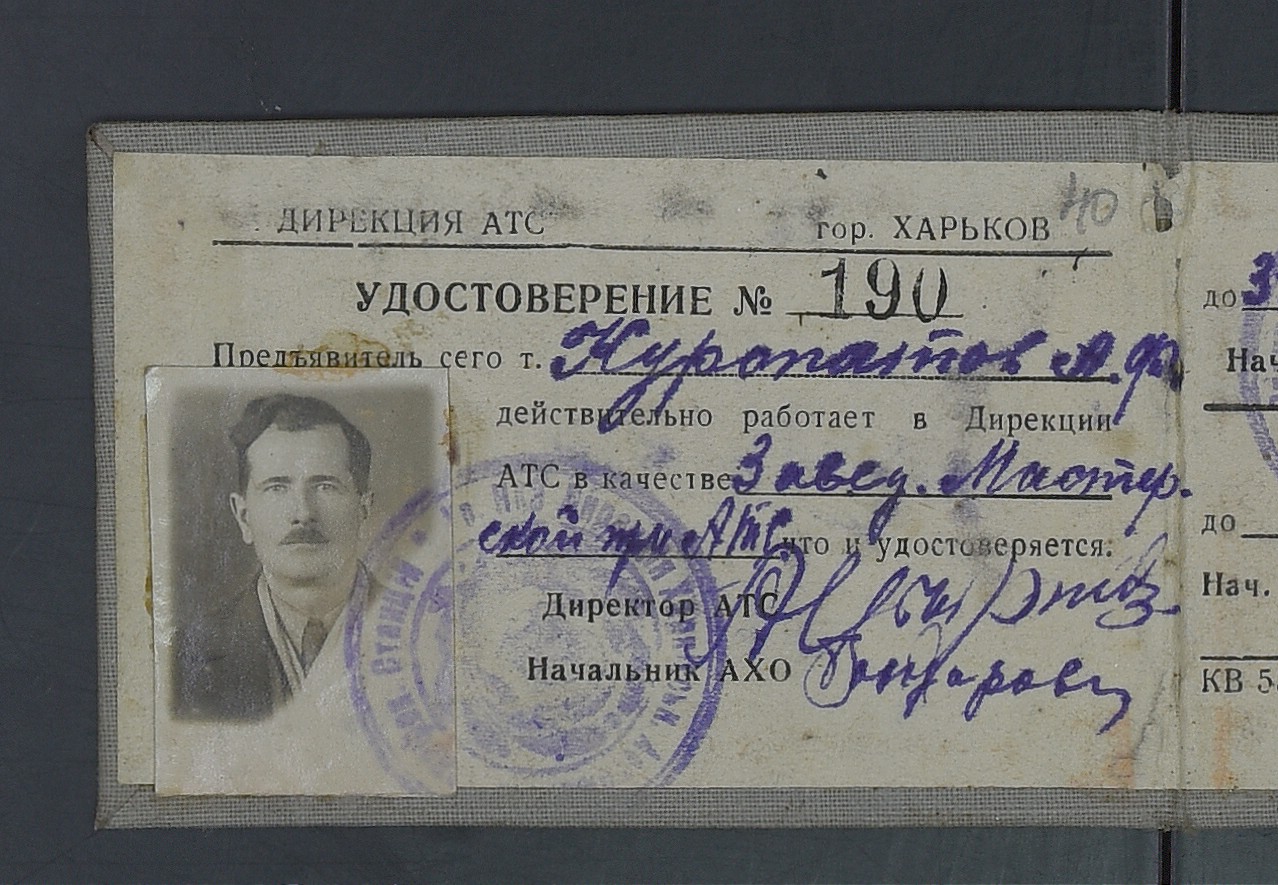 ДИРЕКЦИЯ АТС гор. ХАРЬКОВ 40
УДОСТОВЕРЕНИЕ № 190
Предъявитель сего т. Куропатов А.Ф.
действительно работает в Дирекции
АТС в качестве Завед. Мастер.
ской при АТС, что и удостоверяется.
Директор АТС
Начальник АХО
до 3
Нач
до
Нач.
КВ 5